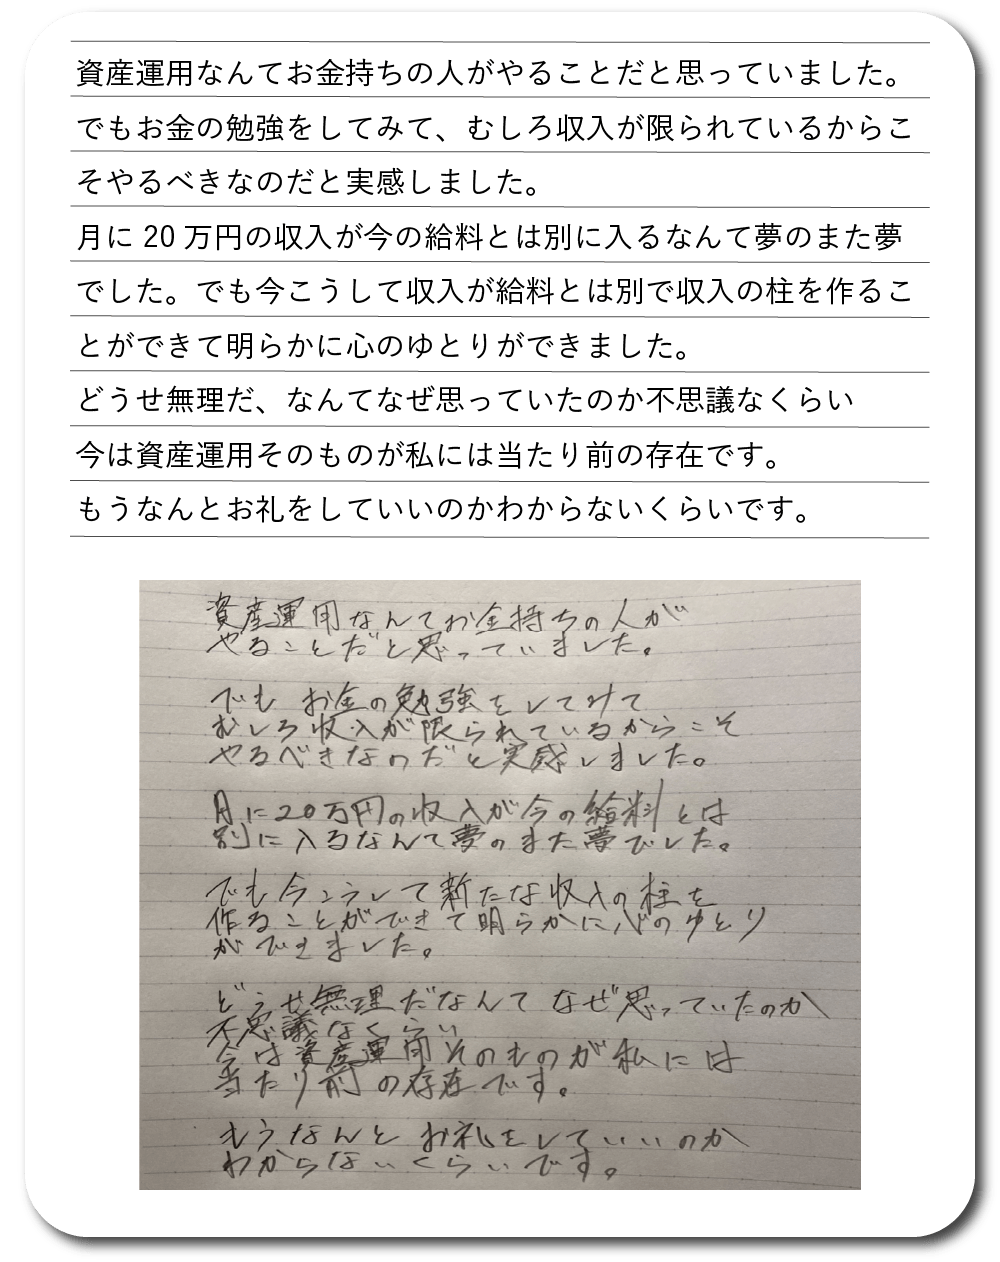 資産運用なんてお金持ちの人がやることだと思っていました。
でもお金の勉強をしてみて、むしろ収入が限られているからこ
そやるべきなのだと実感しました。
月に 20 万円の収入が今の給料とは別に入るなんて夢のまた夢
でした。でも今こうして収入が給料とは別で収入の柱を作るこ
とができて明らかに心のゆとりができました。
どうせ無理だ、なんてなぜ思っていたのか不思議なくらい
今は資産運用そのものが私には当たり前の存在です。
もうなんとお礼をしていいのかわからないくらいです。
資産運用なんてお金持ちの人が
やることだと思っていました。
でも お金の勉強をしてみて
むしろ収入が限られているからこそ
やるべきなのだと実感しました。
月に20万円の収入が今の給料とは
別に入るなんて夢のまた夢でした。
でも今こうして新たな収入の柱を
作ることができて明らかに心のゆとり
ができました。
どうせ無理だなんてなぜ思っていたのか
不思議なくらい
今は資産運用そのものが私には
当たり前の存在です。
もうなんとお礼をしていいのか
わからないくらいです。